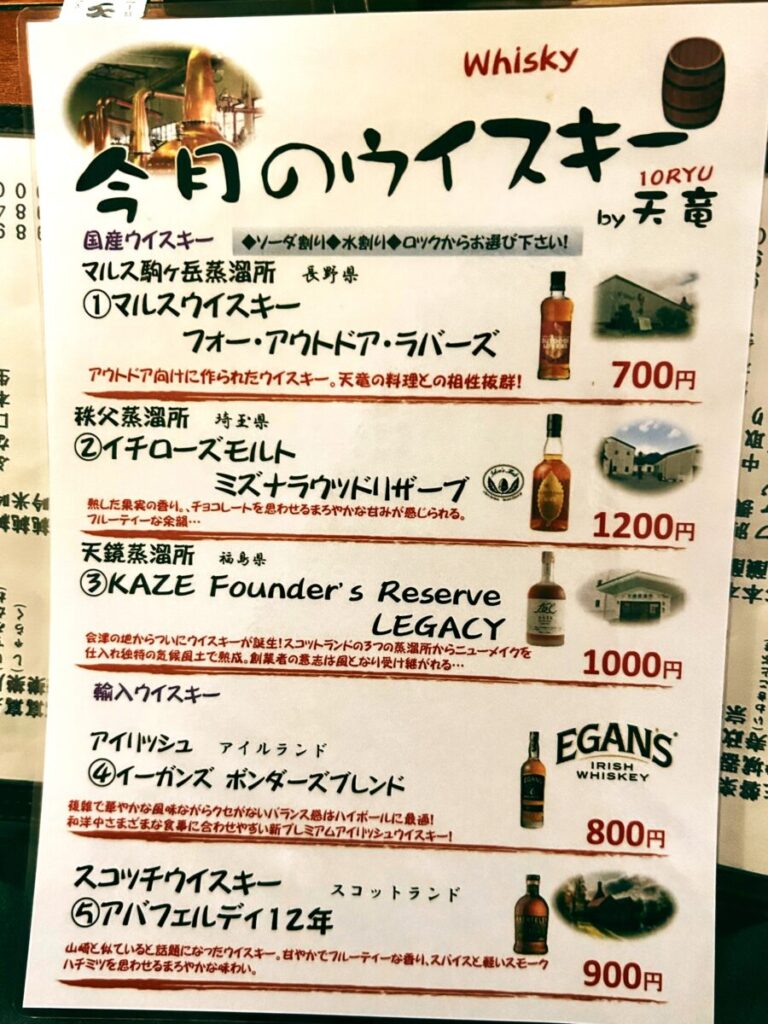 Whisky
今月のウイスキー
10RYU
by 天竜
国産ウイスキー
◆ソーダ割り◆水割り◆ロックからお選び下さい!
マルス駒ヶ岳蒸溜所 長野県
①マルスウイスキー
フォー・アウトドア・ラバーズ
アウトドア向けに作られたウイスキー。天竜の料理との相性抜群!
700円
秩父蒸溜所 埼玉県
②イチローズモルト
ミズナラウッドリザーブ
熟した果実の香り。、チョコレートを思わせるまろやかな甘みが感じられる。
フルーティーな余韻…
1200円
天鏡蒸溜所 福島県
③KAZE Founder's Reserve
LEGACY
会津の地からついにウイスキーが誕生!スコットランドの3つの蒸溜所からニューメイクを
仕入れ独特の気候風土で熟成。創業者の意志は風となり受け継がれる…
1000円
輸入ウイスキー
アイリッシュ アイルランド
④イーガンズ ボンダーズブレンド
EGAN'S
IRISH
WHISKEY
複雑で華やかな風味ながらクセがないバランス感はハイボールに最適!
和洋中さまざまな食事に合わせやすい新プレミアムアイリッシュウイスキー!
800円
スコッチウイスキー スコットランド
⑤アバフェルディ12年
山崎と似ていると話題になったウイスキー。甘やかでフルーティーな香り、スパイスと軽いスモーク
ハチミツを思わせるまろやかな味わい。
900円